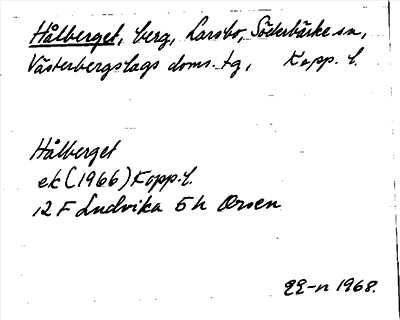 Hålberget, berg, Larsbo, Söderbärke sn,
Västerbergslags doms. tg, Kopp. l.
Hålberget
ek (1966) Kopp. l.
12 F Ludvika 5 h Orsen
1968.